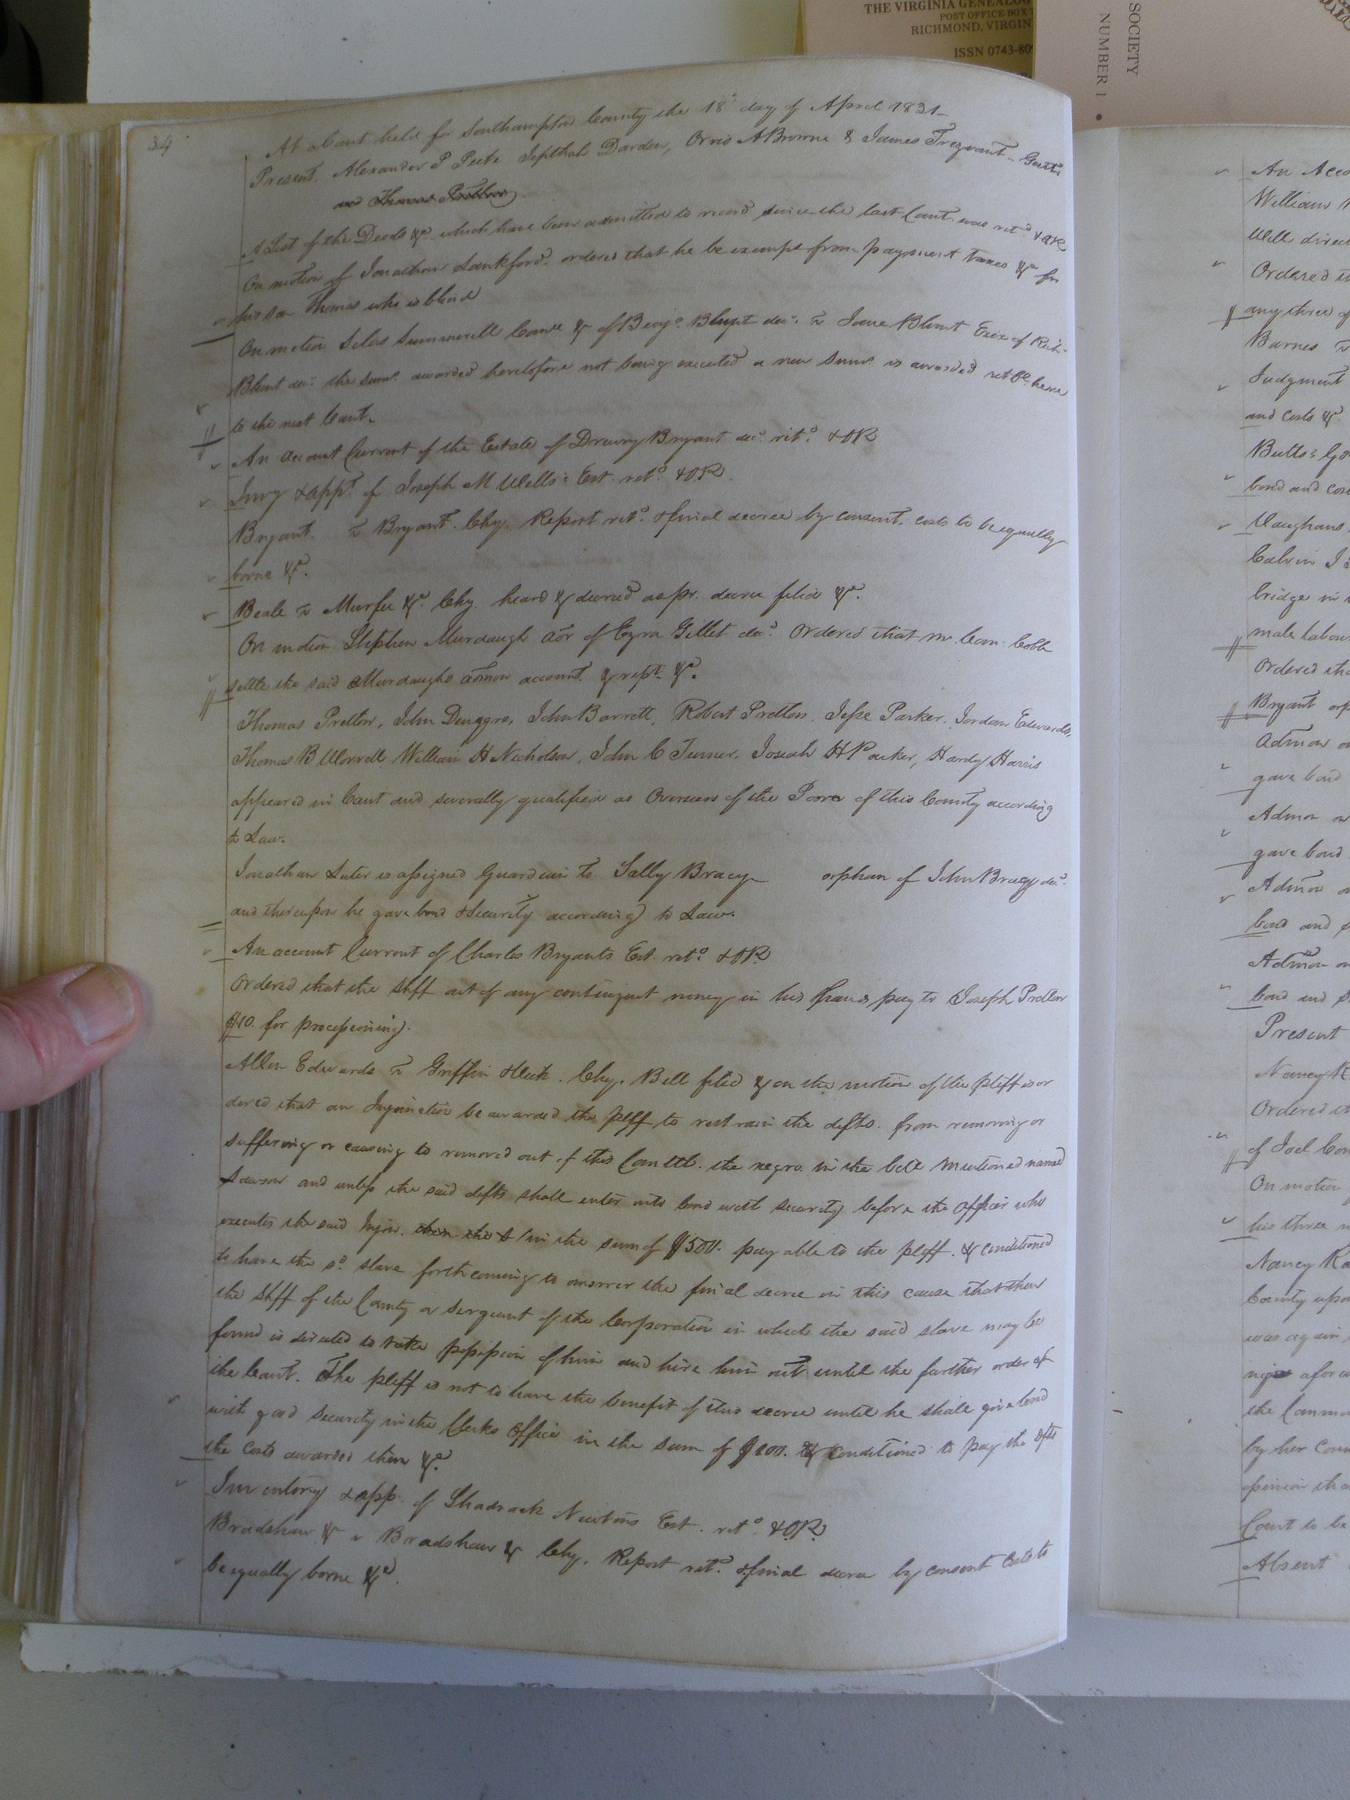 THE VIRGINIA GENEALOG
POST OFFICE BOX
RICHMOND, VIRGIN
ISSN 0743-80
SOCIETY
NUMBER 1
34
At a Court held for Southampton County the 18th day of April 1831
Present. Alexander P Peete Jepthah Darden, Orris A Browne & James Trezvant Gents
and Thomas
A List of the Deeds &c which have been admitted to record since the last Court was retd & OR
On motion of Jonathan Lankford ordered that he be exempt from payment Taxes &c for
his son Thomas who is blind
On motion Silas Summerell Comr &c of Benjo Blunt decd vs Jane Blunt Exex of Richd
Blunt decd the sums awarded heretofore not being executed a new sums is awarded retble here
to the next Court.
An account Current of the Estate of Drewry Bryant decd retd & OR
Invy & appt of Joseph M Wells's Est retd & OR.
Bryant vs Bryant Chy. Report retd & final decree by consent. costs to be equally
borne &c.
Beale vs Murfee &c. Chy. heard & decreed as pr. decree filed &c.
On motion Stephen Murdaugh aor of Ezra Gillet decd Ordered that mr. Com. Cobb
settle the said Murdaughs admon account & rept &c.
Thomas Pretlow, John Denegre, John Barrett, Robert Pretlow, Jesse Parker, Jordan Edwards,
Thomas B Worrell William H Nicholson, John C Turner, Josiah H Parker, Hardy Harris
appeared in Court and severally qualified as Overseers of the Poor of this County according
to Law.
Jonathan Luter is assigned Guardian to Sally Bracy orphan of John Bracy decd
and thereupon he gave bond & Security according to Law.
An account Current of Charles Bryants Est. retd & OR
Ordered that the Shff out of any contingent money in his hands pay to Joseph Pretlow
$10. for processioning.
Allen Edwards vs Griffin Cheek. Chy. Bill filed & on the motion of the pltff it is or
dered that an Injunction be awarded the pltff to restrain the defts. from removing or
suffering or causing to removed out of this Comlth. the negro in the bill mentioned named
and unless the said defts shall enter into bond with security before the officer who
executes the said Injon. then the d in the sum of $500. payable to the pltff. & conditioned
to have the sd slave forthcoming to answer the final decree in this cause that then
the Shff of the County or sergeant of the Corporation in which the said slave may be
found is directed to take possession of him and hire him out until the further order of
the Court. The pltff is not to have the benefit of this decree until he shall give bond
with good security in the Clerks Office in the sum of $200. conditioned to pay the dfts
the costs awarded them &c.
Inventory & app. of Shadrack Newtons Est. retd & OR
Bradshaw &c vs Bradshaw & Chy. Report retd. & final decree by consent Costs to
be equally borne &c.
An Acco
William
Will direc
Ordered
any three of
Barnes vs
Judgment
and costs &c
Butts's Go
bond and
Vaughans
Calvin J
bridge in
male labou
Ordered tha
Bryant orp
Admon o
gave bond
Admon
gave bond
Admon
bond and
Admon o
bond and
Present
Nancy K
Ordered
of Joel
On motion
his three
Nancy
County upo
was again
afor
the Comm
by her Coun
opinion tha
Court to be
Absent